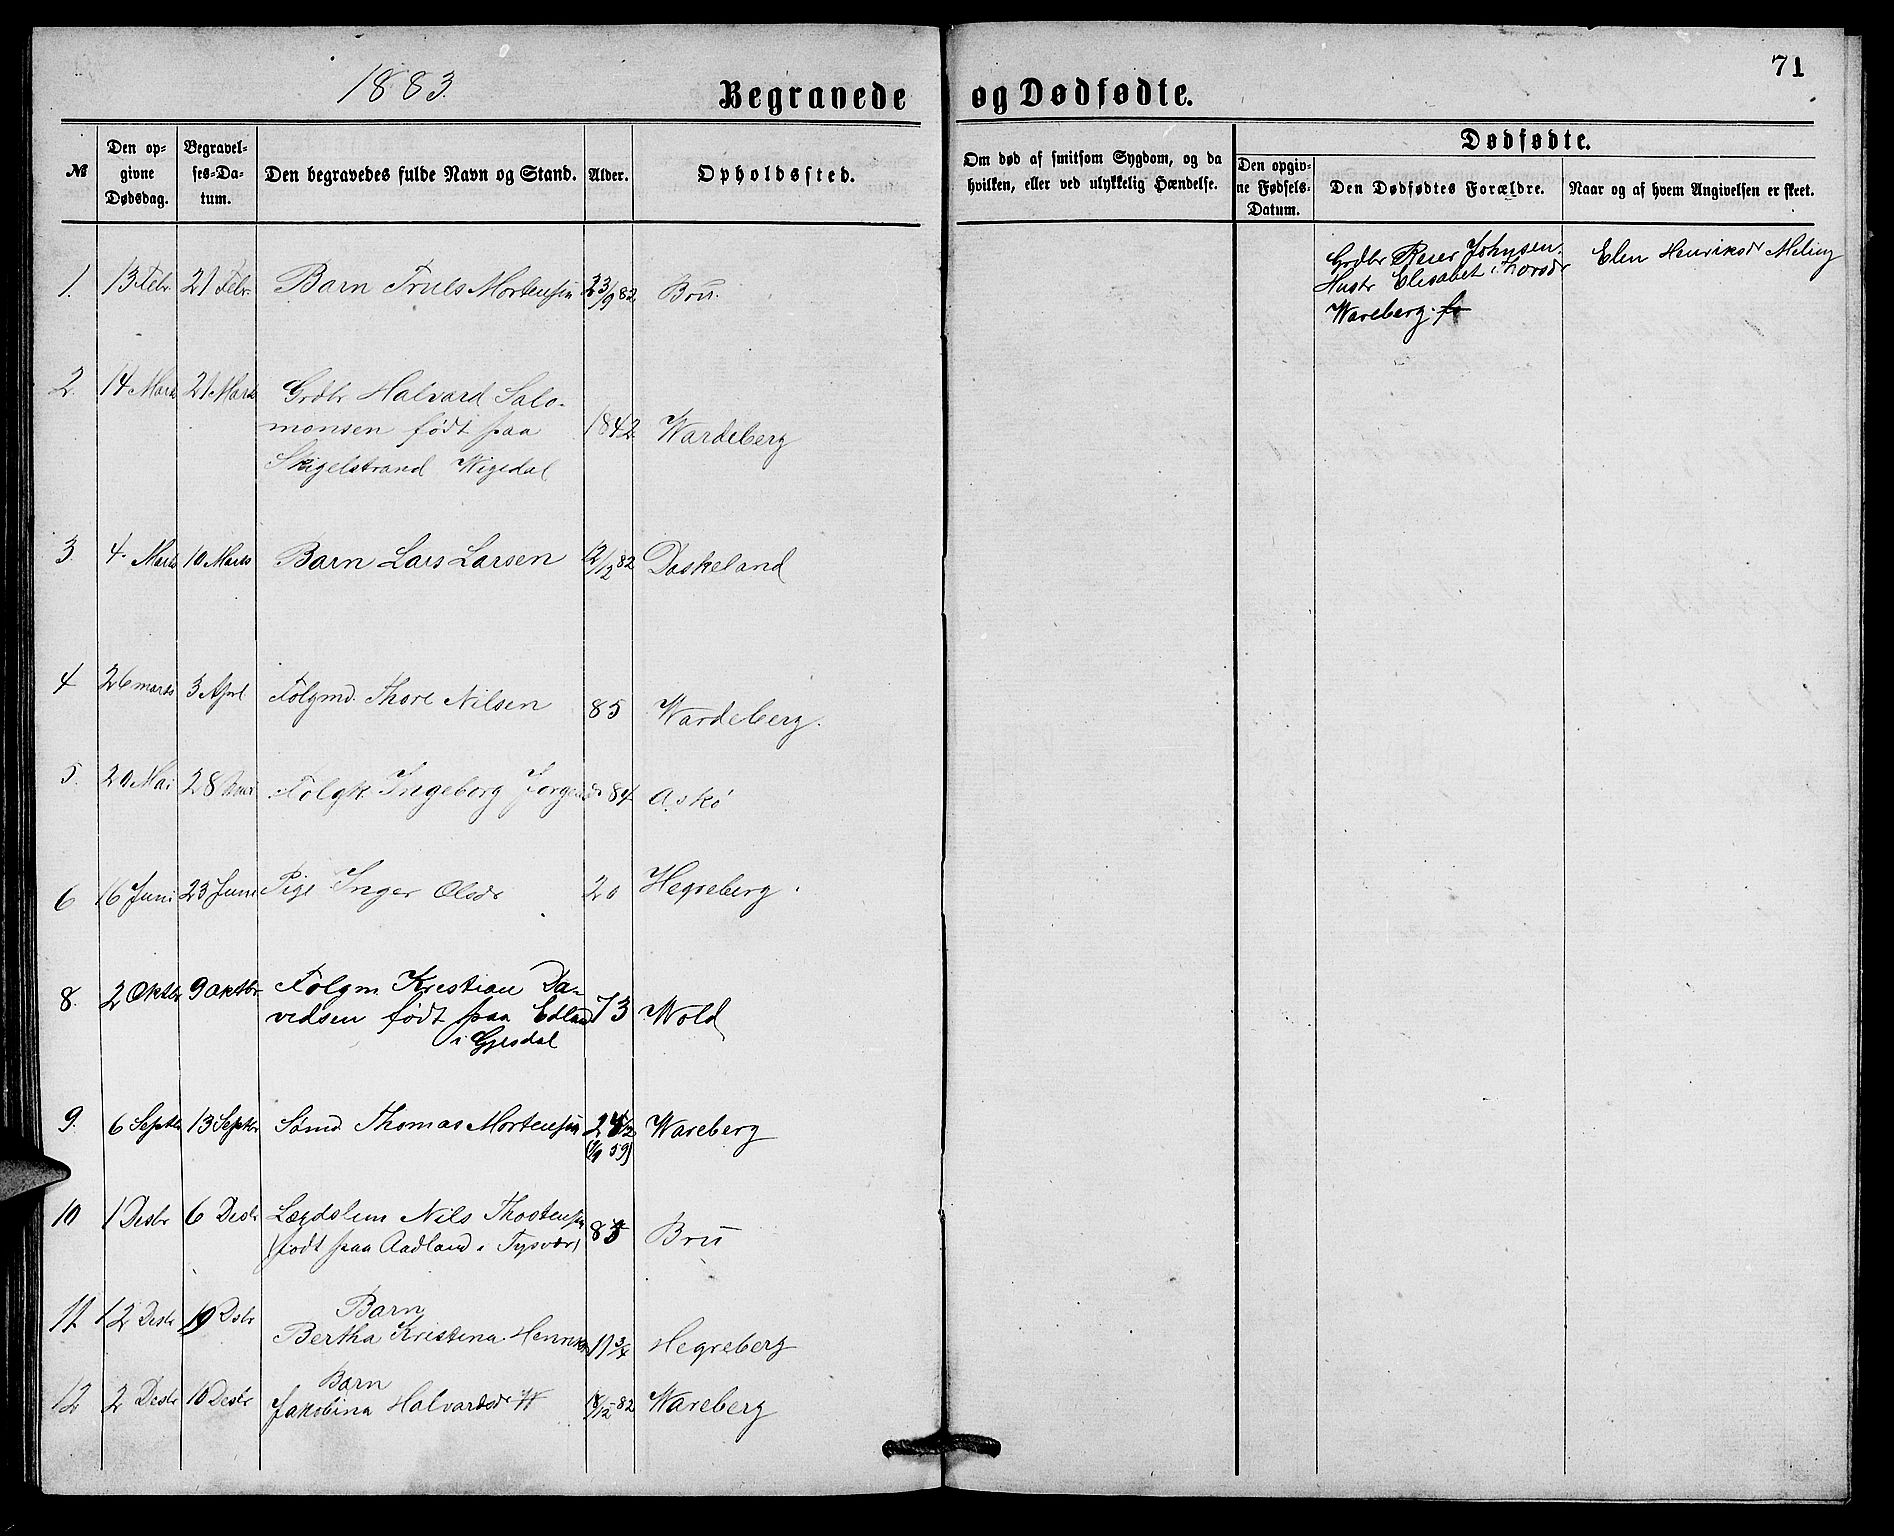 1883.
Begravede og Dødfødte.
71
№
Den opgivne Dødsdag.
Begravelses-Datum.
Den begravedes fulde Navn og Stand.
Alder.
Opholdssted.
Om død af smitsom Sygdom, og da hvilken, eller ved ulykkelig Hændelse.
Dødfødte.
Den opgivne Fødsels-Datum.
Den Dødfødtes Forældre.
Naar og af hvem Angivelsen er skeet.
1. 13 Febr. 21 Febr. Barn Truls Mortensen 23/9 82 Bru.
Grdbr Reier Johnsen.
Hustr Elisabet Thorsdr
Wareberg.
Elen Henriksdr Meling
2. 14 Marts 21 Marts Grdbr Halvard Salo-
monsen født paa 1842 Wardeberg
Skigelstrand Wigedal
3. 4. Marts 10 Marts Barn Lars Larsen 12/12 82 Daskeland
4 26 marts 3 April Folgmd. Thore Nilsen 85 Wardeberg.
5. 20 Mai 28 Mai Folgk Ingeborg Jorgensdr 84 Askø
6 16 Juni 23 Juni Pige Inger Olsdr 20 Hegreberg.
8. 2 Oktbr 9 Oktbr Folgm Kristian Da-
vidsen født paa Edland 73 Wold
i Gjesdal
9. 6 Septbr 13 Septbr Sømd Thomas Mortensen 24 1/2 Wareberg
59)
10 1 Desbr 6 Desbr Lægdslem Nils Thostensen
(født paa Aadland i Tysvær) 85 Bru
11. 12 Desbr 19 Dsbr Barn
Bertha Kristina Henriksdr 11 3/4 Hegreberg
12 2 Desbr 10 Desbr Barn
Jakobina Halvardsdr W 18/12 82 Wareberg